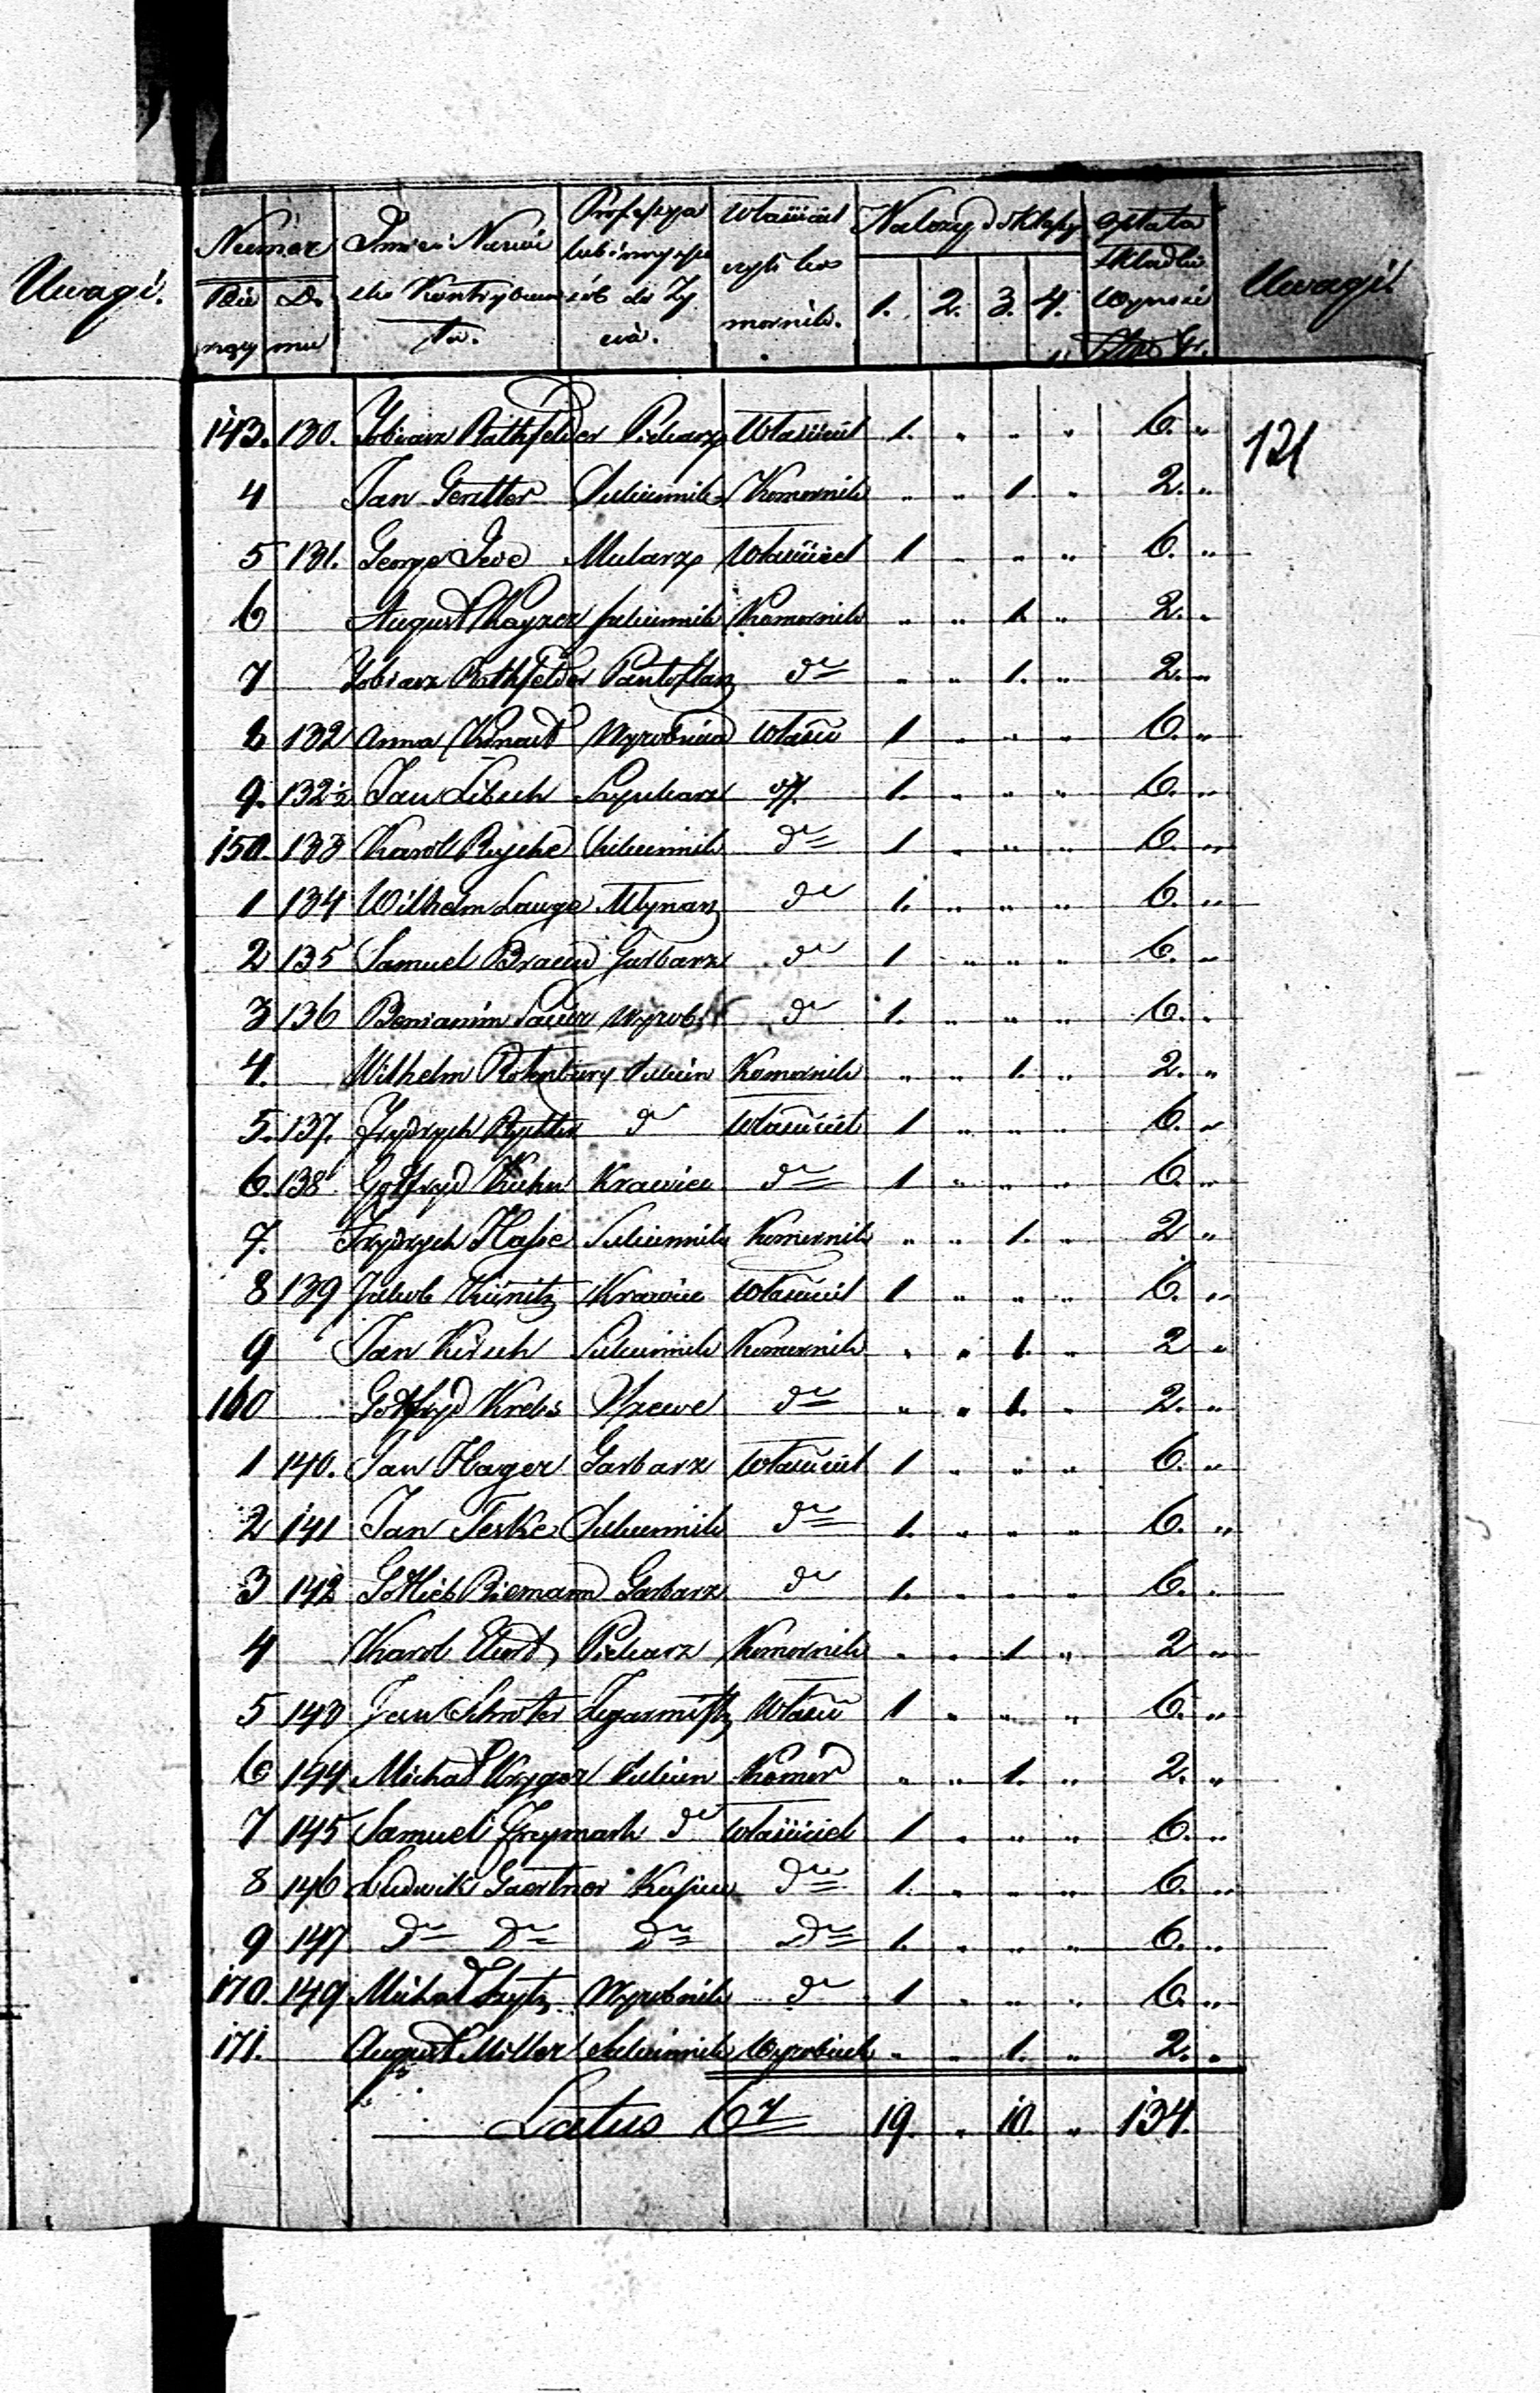 Uwagi.
Numer Imie i Nazwi Professya Właściciel Należy do klassy opłata Uwagi.
lub inny spo składki
Bie Do sko Kontrybuen sób do Ży czyli ko 1. 2. 3. 4. wynosi
rzący mu ta. cia. mornik.
143. 130. Tobiasz Rathfelder Piekarz Właściciel 1. " " " 6. "
121
4 Jan Gentler Sukiennik Komornik " " 1. " 2. "
5 131. George Ive Mularz Właściciel 1 " " " 6. "
6 August Kayzer sukiennik Komornik " " 1. " 2. "
7 Tobiasz Rothfelder Pantoflarz do " " 1. " 2. "
8 132 Anna Knaut Wyrobnica Właści 1 " " " 6. "
9. 132½ Jan Libsch 1. " " " 6. "
150. 133 Karol Sukiennik do 1 " " " 6. "
1 134 Wilhelm Lange Młynarz do 1. " " " 6. "
2 135 Samuel Braun Garbarz do 1 " " " 6. "
3 136 Beniamin Wyrob. do 1. " " " 6. "
4. Wilhelm Rotenburg Sukien Komornik " " 1. " 2. "
5. 137. Frydrych Rychter do Właściciel 1 " " " 6. "
6. 138 Gotfryd Kuhn Krawiec do 1 " " " 6. "
7. Frydrych Hasse Sukiennik Komornik " " 1. " 2 "
8 139 Jakob Künitz Krawiec Właściciel 1 " " " 6. "
9 Jan Kirsch Sukiennik Komornik " " 1. " 2 "
160 Gotfryd Krebs Szewc do " " 1. " 2. "
1 140. Jan Hager Garbarz Właściciel 1 " " " 6. "
2 141 Jan Teske Sukiennik do 1. " " " 6. "
3 142 Gottlieb Riemann Garbarz do 1. " " " 6. "
4 Karol Piekarz Komornik " " 1. " 2 "
5 143 Jan Schroter Zegarmistrz Właści 1 " " " 6. "
6 144 Michał Kryger Sukien Komor " " 1. " 2. "
7 145 Samuel Freymark do Właściciel 1 " " " 6. "
8 146 Ludwik Gaertner Kupiec do 1. " " " 6. "
9 147 do do do do 1. " " " 6. "
170. 149 Michał Szytz Wyrobnik do 1 " " " 6. "
171. August Miller Sukiennik Wyrobnik " " 1. " 2. "
Latus 67 19. " 10. " 134.